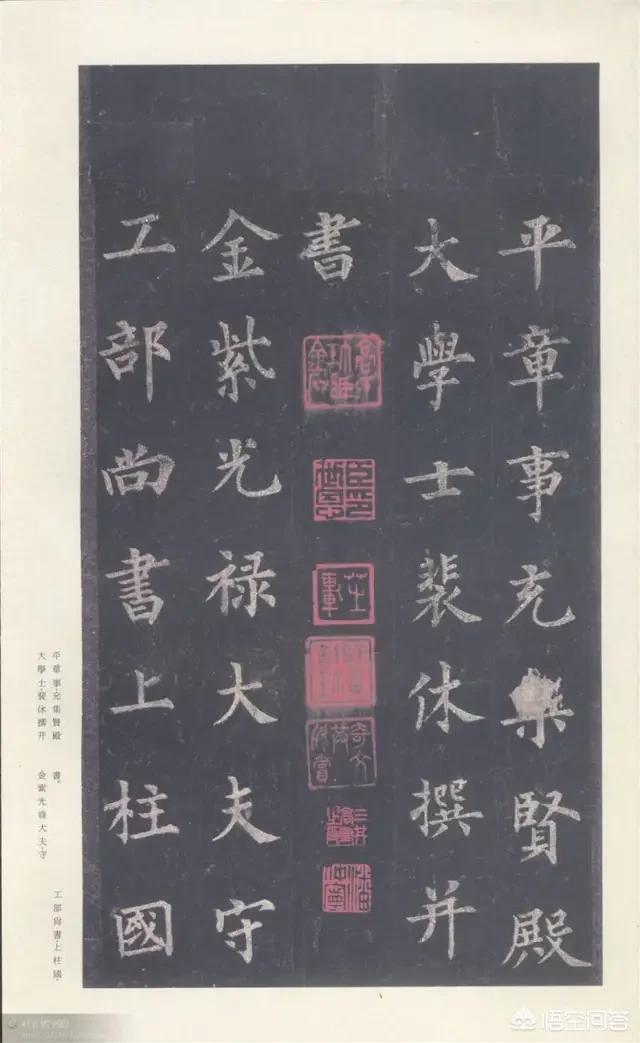 平章事充集賢殿
大學士裴休撰并
書
金紫光禄大夫守
工部尚書上柱國
平章事·充集賢殿
大學士·裴休撰并
書。
金紫光祿大夫·守
工部尚書·上柱國·
悟空问答